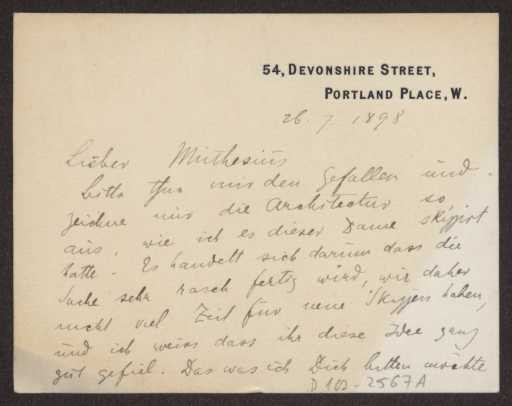 54, DEVONSHIRE STREET,
PORTLAND PLACE, W.
26. 7. 1898
Lieber Muthesius
bitte thu mir den Gefallen und
zeichne mir die Architectur so
aus, wie ich es dieser Dame skizzirt
hatte. Es handelt sich darum dass die
Sache sehr rasch fertig wird, wir daher
nicht viel Zeit für neue Skizzen haben,
und ich weiss dass ihr diese Idee ganz
gut gefiel. Das was ich Dich bitten möchte
D 102-2567A